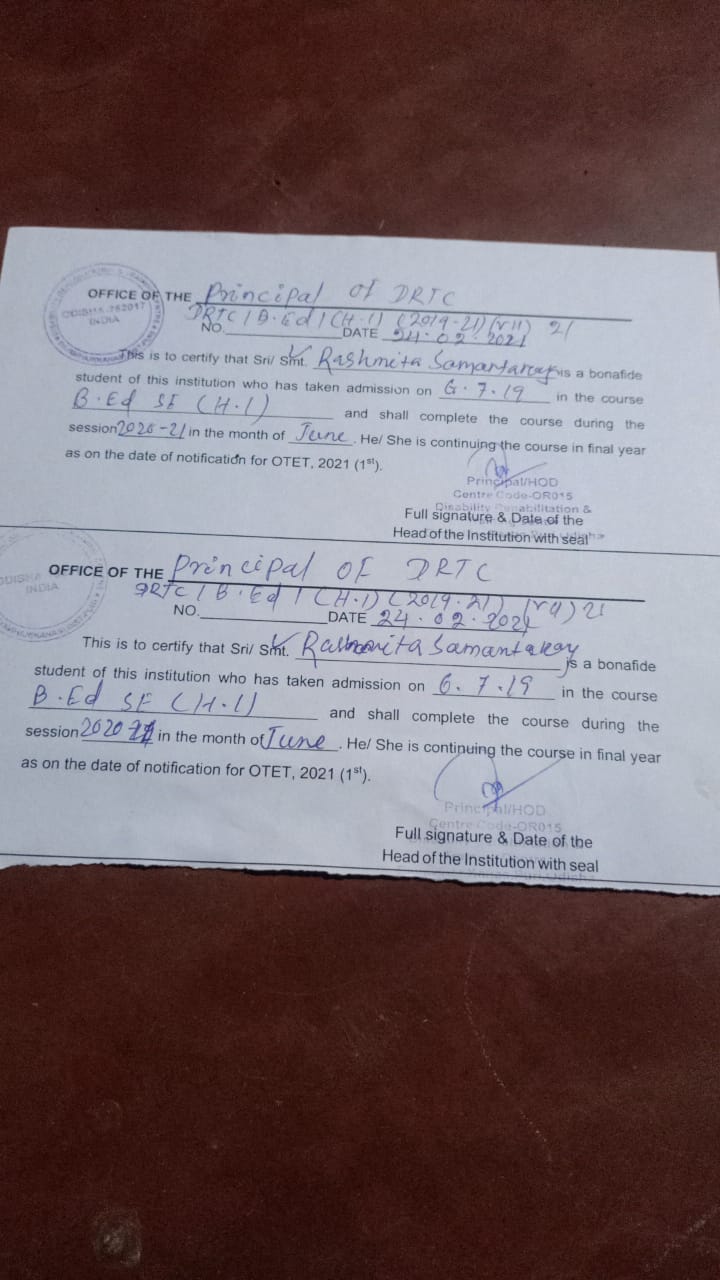 OFFICE OF THE Principal of DRTC
DRTC / B.Ed / (H.I) (2019-21) (VII) 21
NO. DATE 24.02.2021
ODISHA-752017
INDIA
This is to certify that Sri/ Smt. Rashmita Samantaray is a bonafide
student of this institution who has taken admission on 6.7.19 in the course
B.Ed SE (H.I) and shall complete the course during the
session 2020-21 in the month of June. He/ She is continuing the course in final year
as on the date of notification for OTET, 2021 (1st).
Principal/HOD
Centre Code-OR015
Disability Rehabilitation &
Full signature & Date of the
Head of the Institution with seal
OFFICE OF THE Principal OF DRTC
DRTC / B.Ed / (H.I) (2019-21) 21
NO. DATE 24.02.2021
ODISHA
INDIA
This is to certify that Sri/ Smt. Rashmita Samantaray is a bonafide
student of this institution who has taken admission on 6.7.19 in the course
B.Ed SE (H.I) and shall complete the course during the
session 2020 21 in the month of June. He/ She is continuing the course in final year
as on the date of notification for OTET, 2021 (1st).
Principal/HOD
Centre Code-OR015
Full signature & Date of the
Head of the Institution with seal